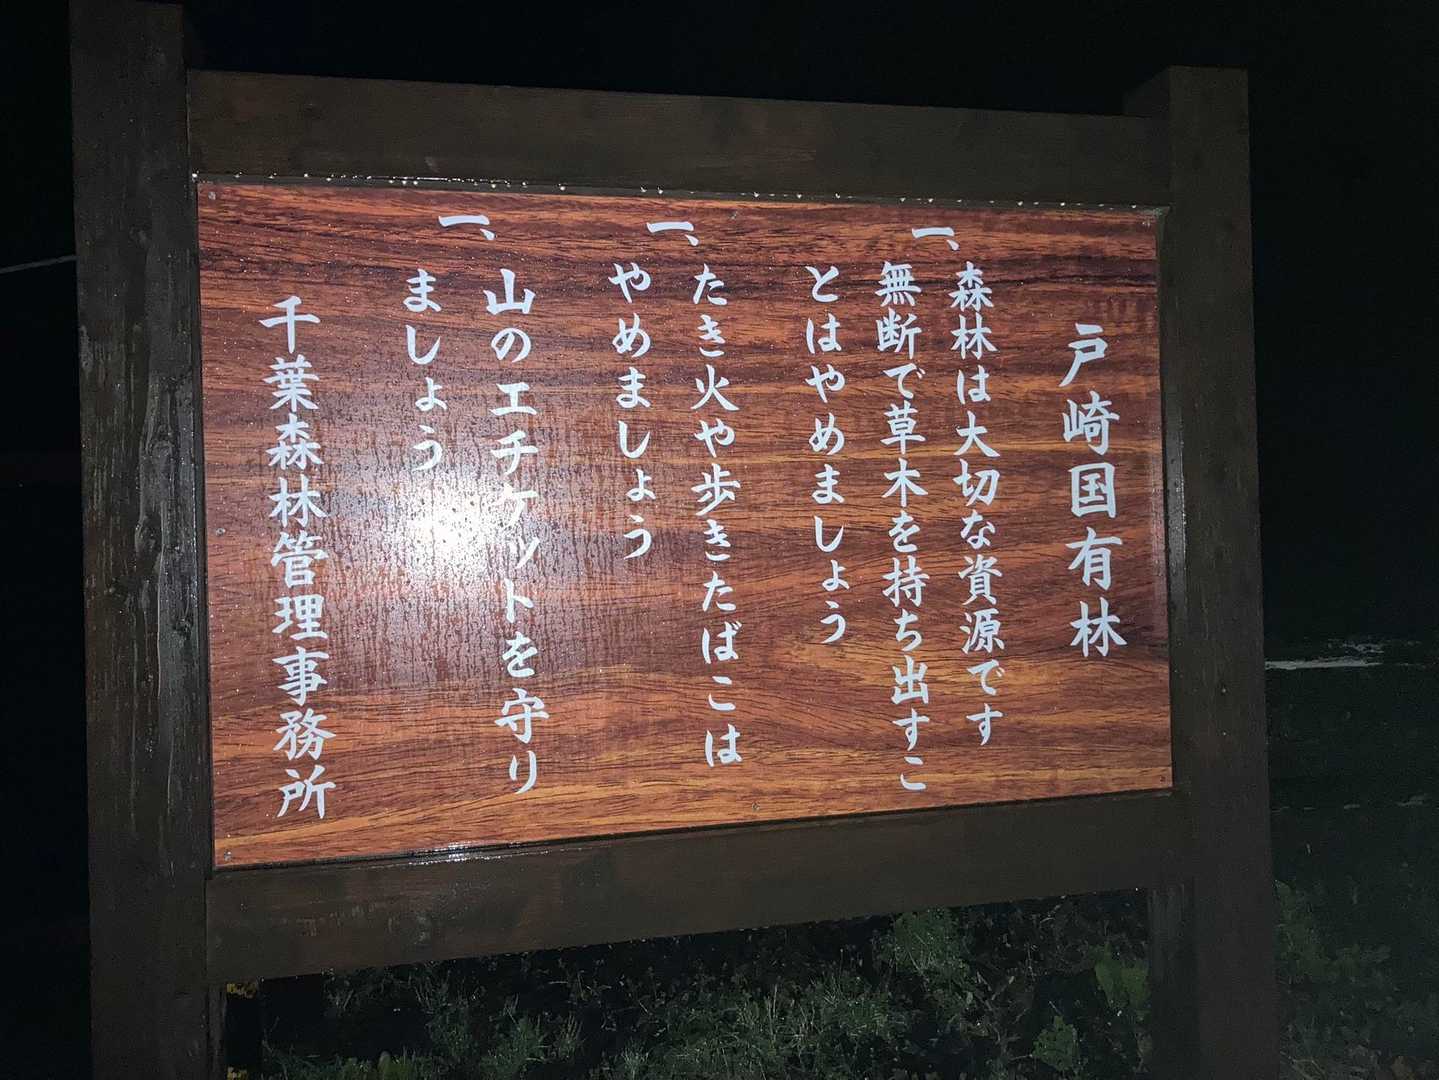 戸崎国有林
一、森林は大切な資源です
無断で草木を持ち出すこ
とはやめましょう
一、たき火や歩きたばこは
やめましょう
一、山のエチケットを守り
ましょう
千葉森林管理事務所